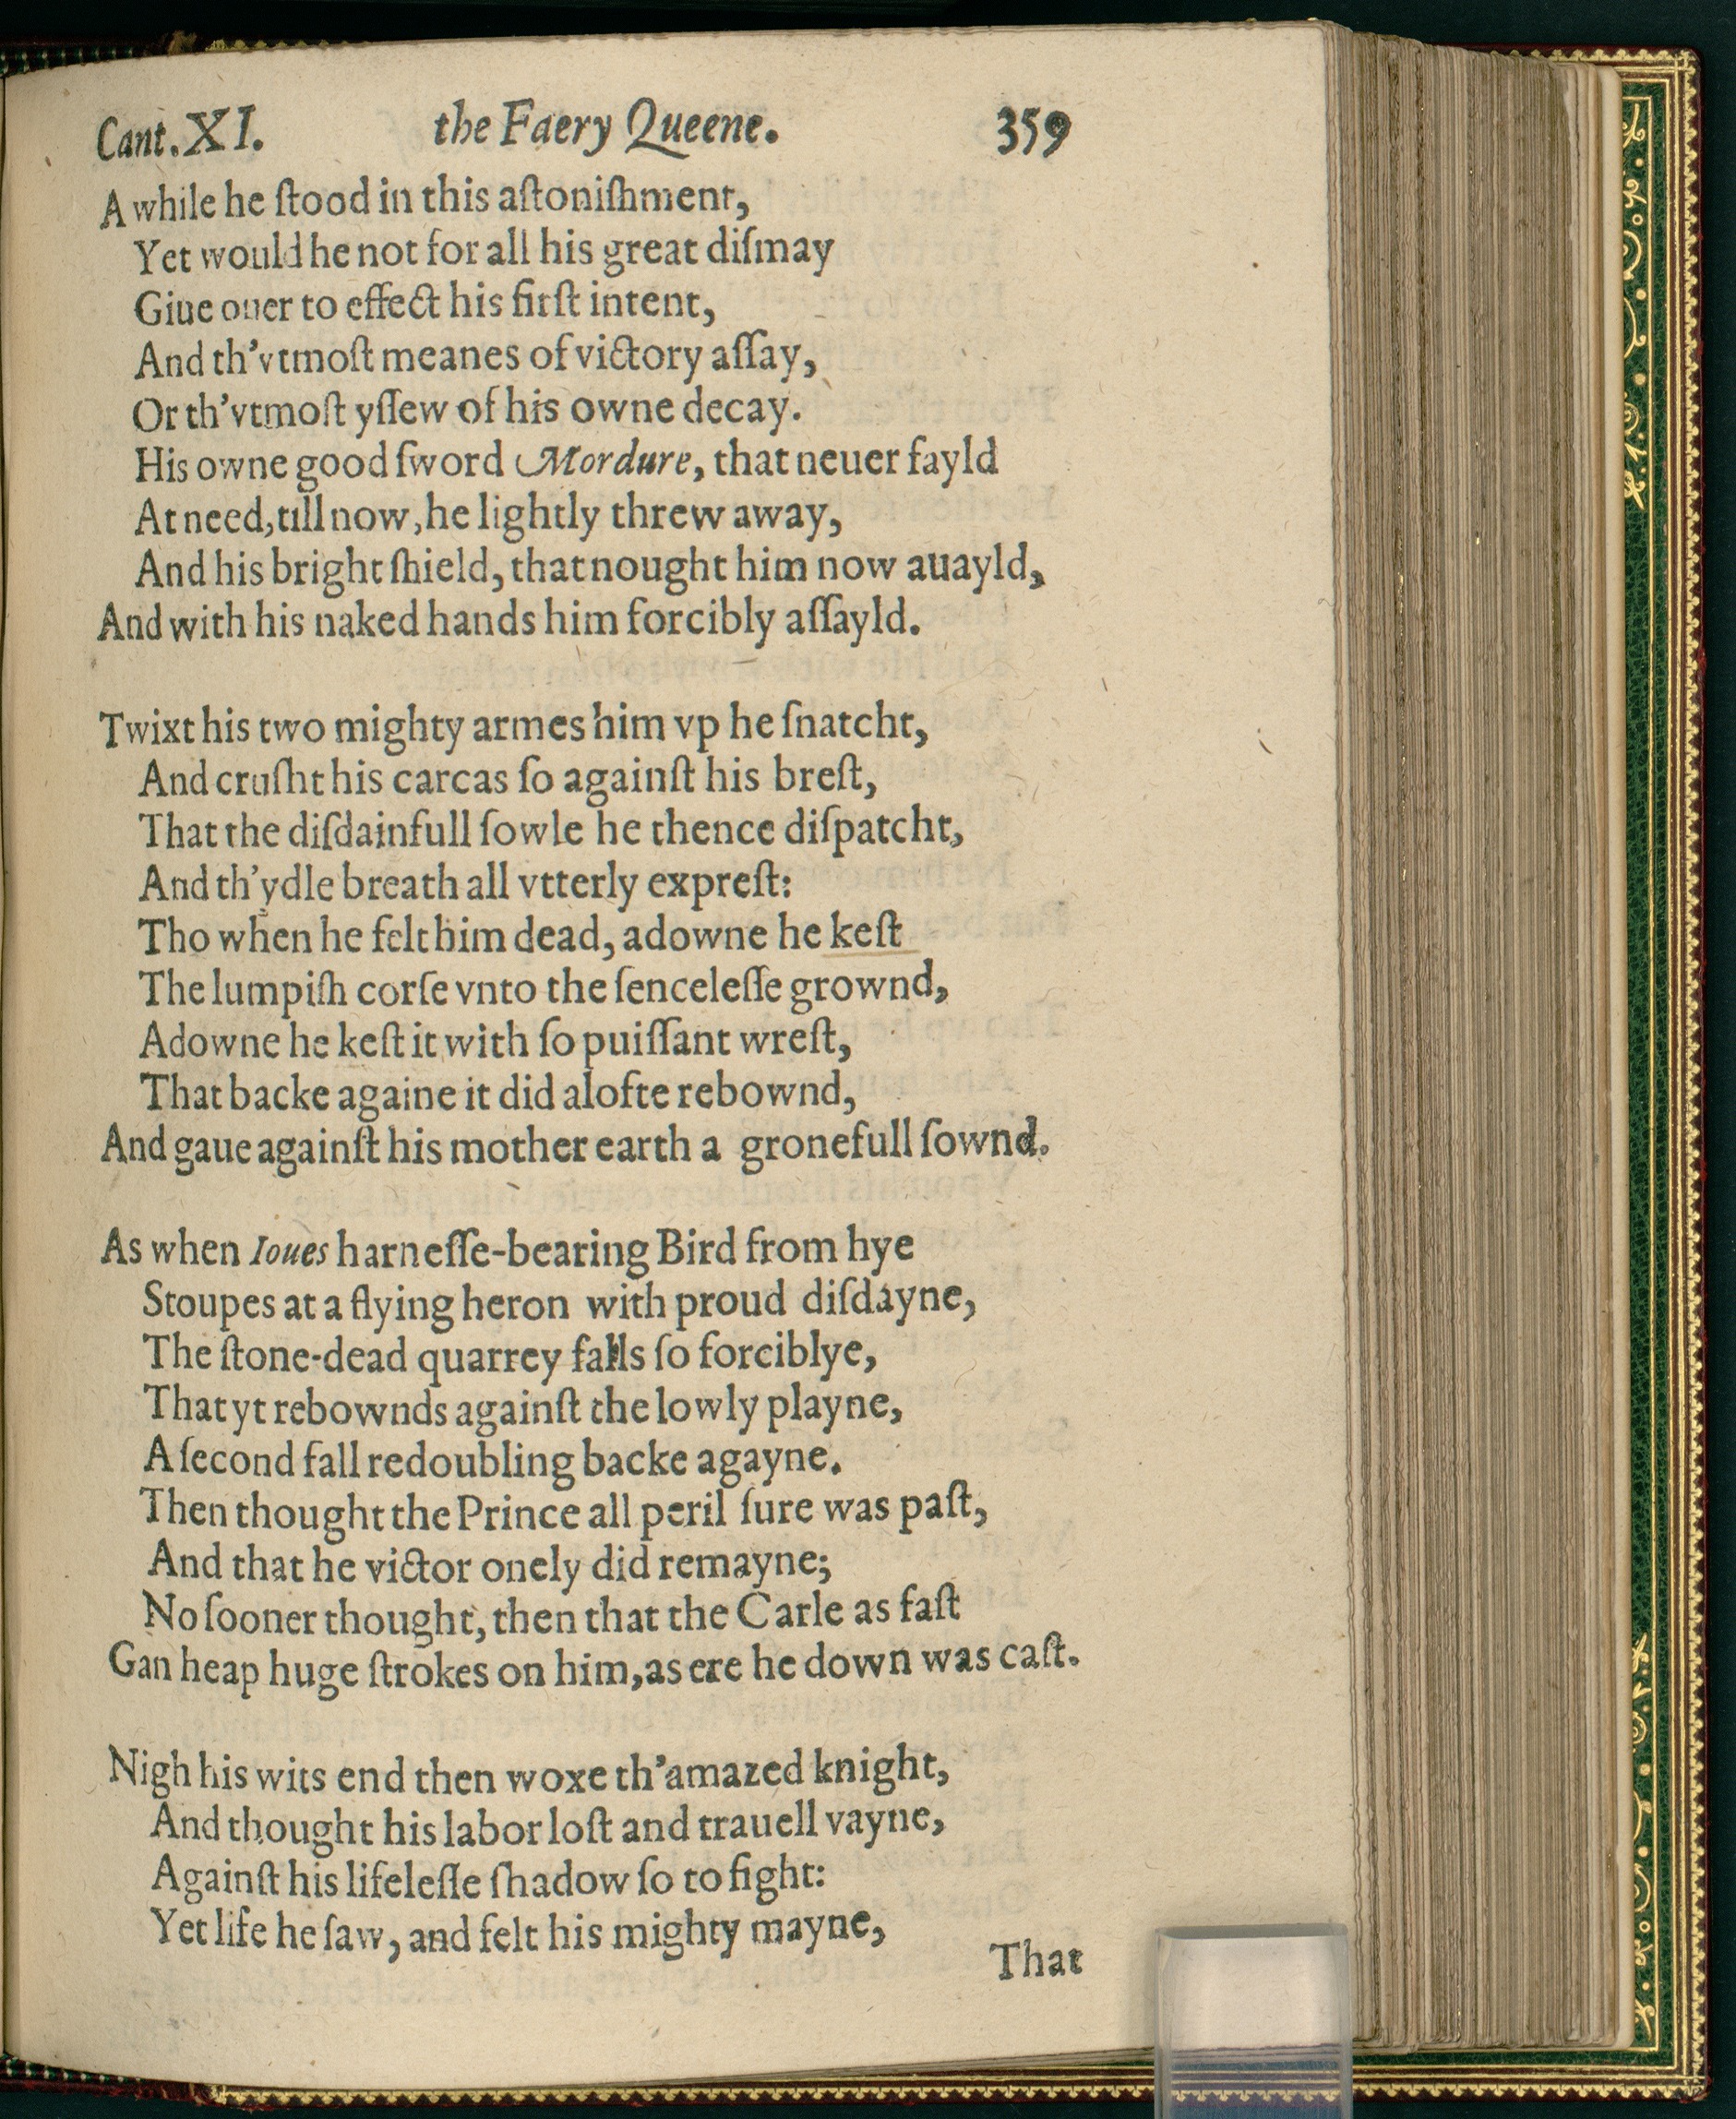 Cant. XI. the Faery Queene. 359
A while he ſtood in this aſtoniſhment,
Yet would he not for all his great diſmay
Giue ouer to effect his firſt intent,
And th'vtmoſt meanes of victory aſſay,
Or th'vtmoſt yſſew of his owne decay.
His owne good ſword Mordure, that neuer fayld
At need, till now, he lightly threw away,
And his bright ſhield, that nought him now auayld,
And with his naked hands him forcibly aſſayld.
Twixt his two mighty armes him vp he ſnatcht,
And cruſht his carcas ſo againſt his breſt,
That the diſdainfull ſowle he thence diſpatcht,
And th'ydle breath all vtterly expreſt:
Tho when he felt him dead, adowne he keſt
The lumpiſh corſe vnto the ſenceleſſe grownd,
Adowne he keſt it with ſo puiſſant wreſt,
That backe againe it did alofte rebownd,
And gaue againſt his mother earth a gronefull ſownd.
As when Ioues harneſſe-bearing Bird from hye
Stoupes at a flying heron with proud diſdayne,
The ſtone-dead quarrey falls ſo forciblye,
That yt rebownds againſt the lowly playne,
A ſecond fall redoubling backe agayne.
Then thought the Prince all peril ſure was paſt,
And that he victor onely did remayne;
No ſooner thought, then that the Carle as faſt
Gan heap huge ſtrokes on him, as ere he down was caſt.
Nigh his wits end then woxe th'amazed knight,
And thought his labor loſt and trauell vayne,
Againſt his lifeleſſe ſhadow ſo to fight:
Yet life he ſaw, and felt his mighty mayne,
That